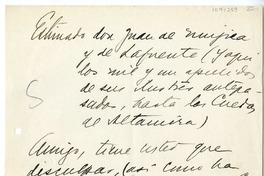 Estimado don Juan de Mujica
y de Lafuente (Y aquí
los mil y un apellidos
de sus ilustres antepa-
sados, hasta las Cuevas
de Altamira)
Amigo, tiene usted que
disculpar, (así como ha